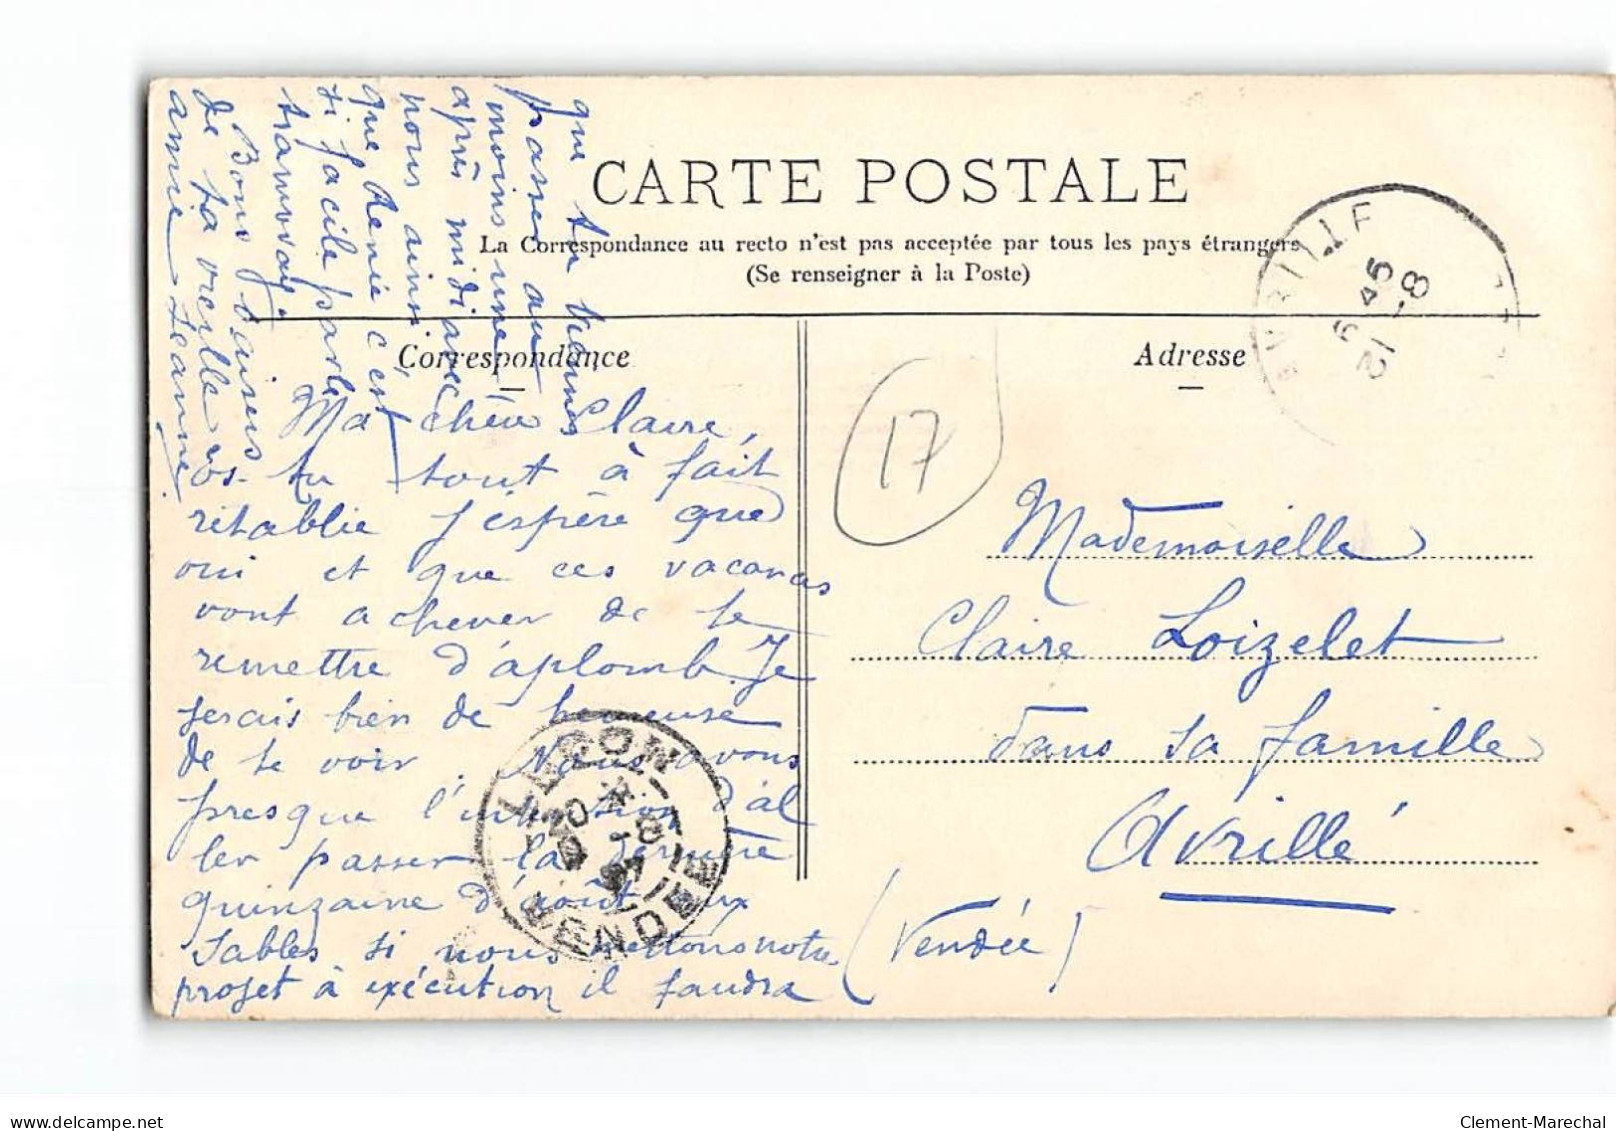 CARTE POSTALE
La Correspondance au recto n'est pas acceptée par tous les pays étrangers
(Se renseigner à la Poste)
Correspondance
Ma chère Claire,
es-tu tout à fait
rétablie j'espère que
oui et que ces vacances
vont achever de te
remettre d'aplomb. Je
serais bien de heureuse
de te voir. Nous avons
presque l'intention d'al
ler passer la dernière
quinzaine d'août aux
Sables si nous mettons notre
projet à exécution il faudra
que tu viennes
passer au
moins une
après midi avec
nous ainsi
que Renée c'est
si facile par le
tramway
Bons baisers
de ta vieille
amie Jeanne
Adresse
Mademoiselle
Claire Loizelet
dans sa famille
Avrillé
(Vendée)
17
AVRILLE
6 45
21 -8
LUÇON
VENDEE
www.delcampe.net
Clement-Marechal